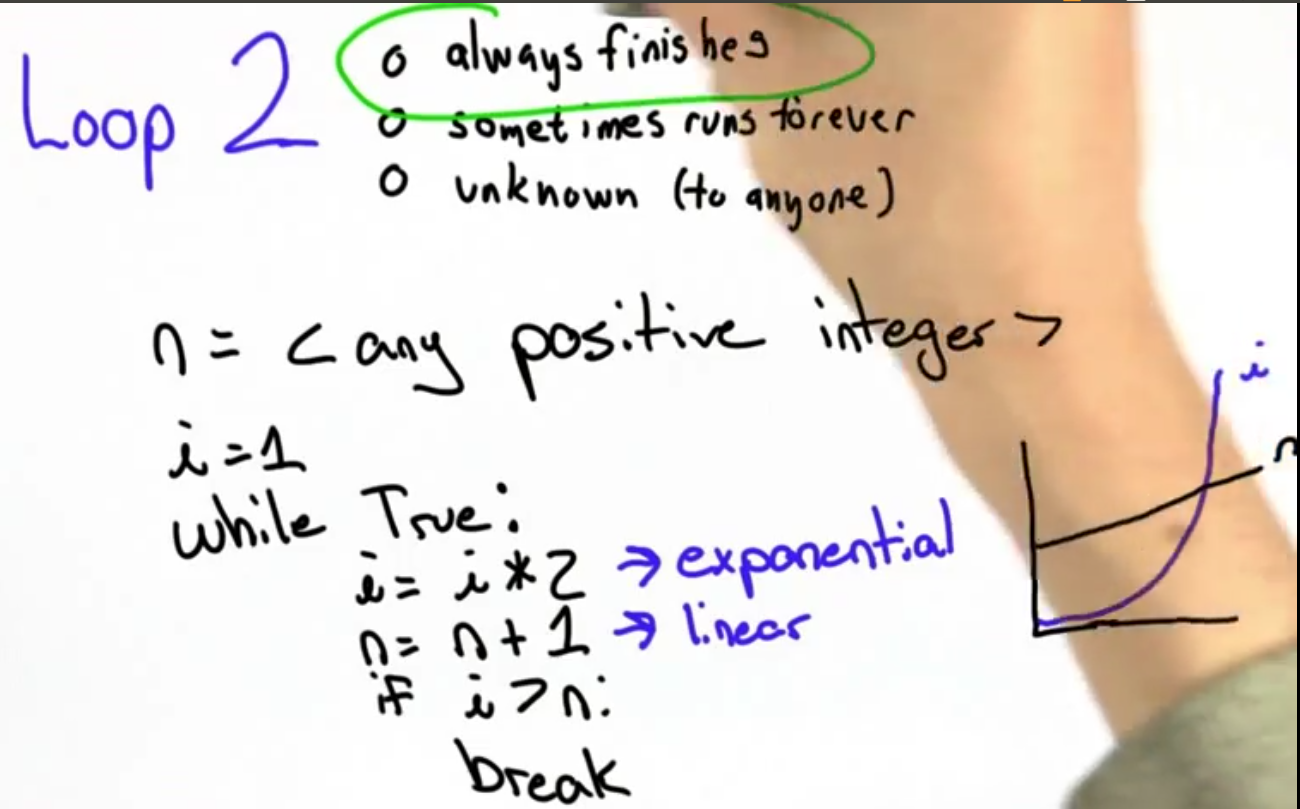 Loop 2
o always finishes
o sometimes runs forever
o unknown (to anyone)
n = <any positive integer>
i = 1
while True:
i = i * 2 → exponential
n = n + 1 → linear
if i > n:
break
i
n